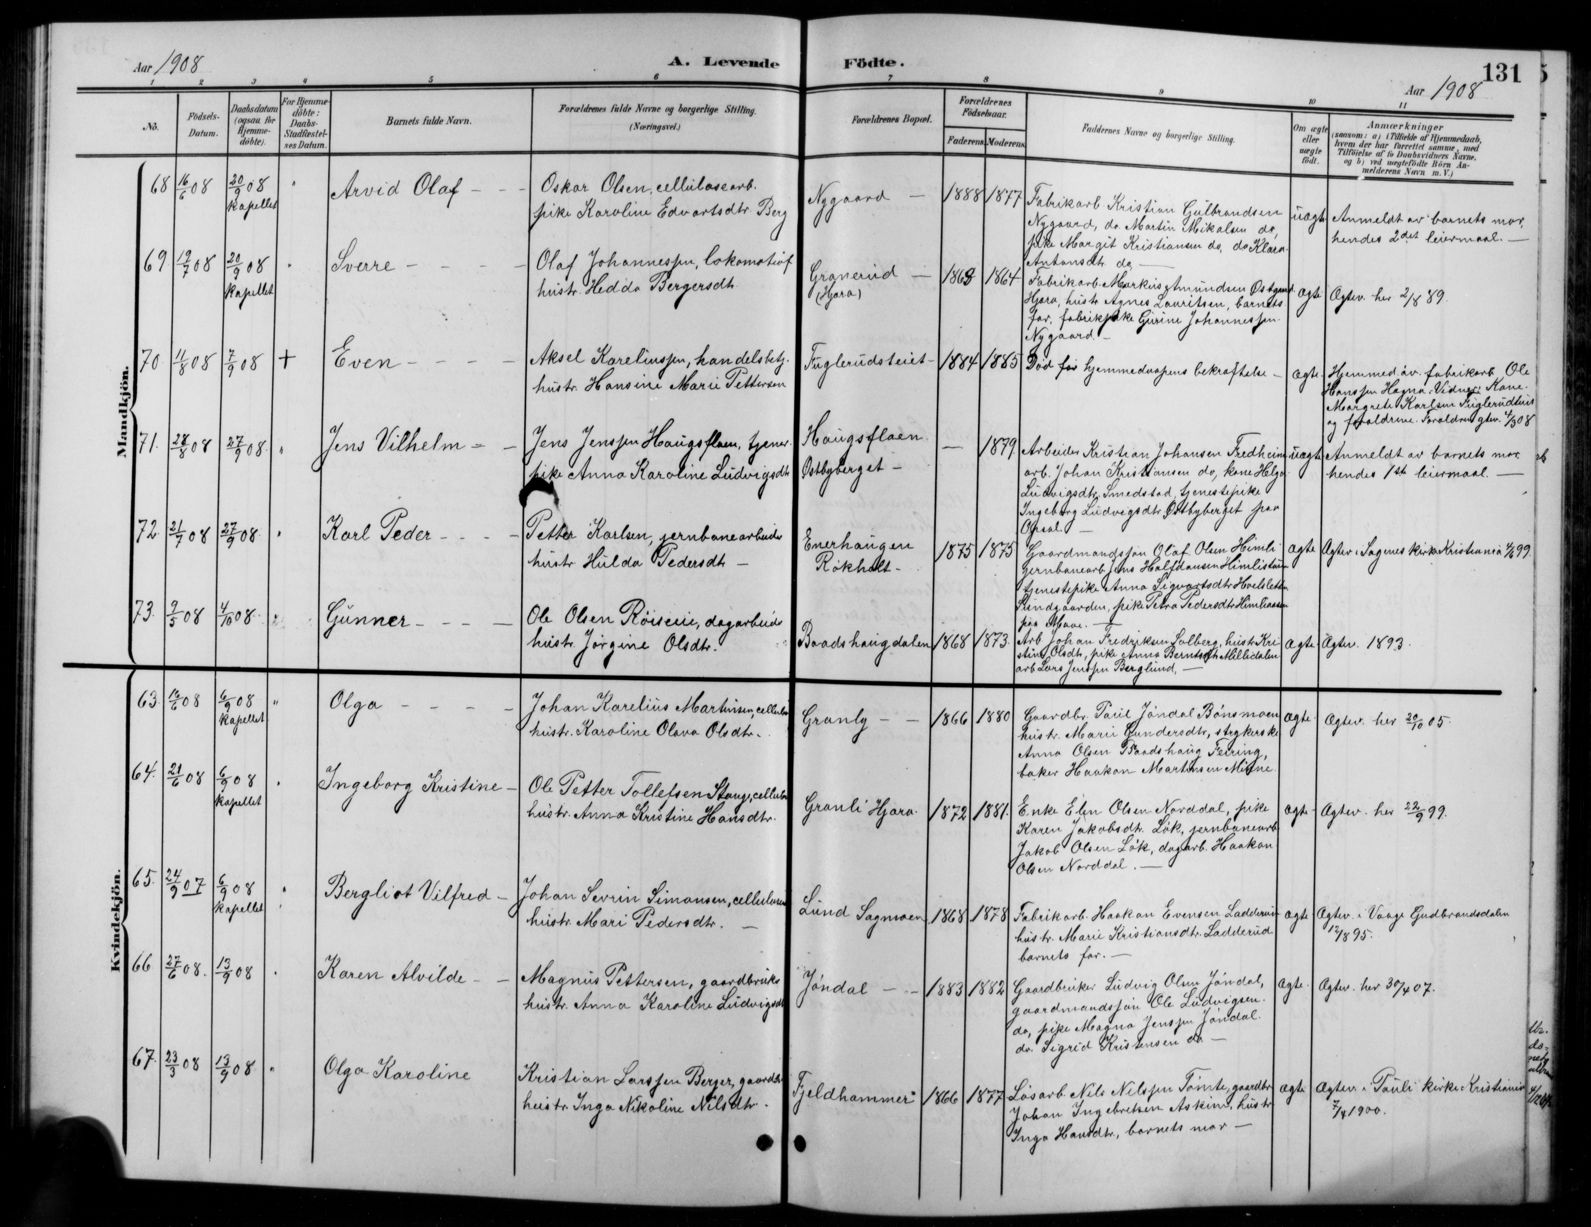 Aar 1908
A. Levende Fødte.
131
Aar 1908
1 2 3 4 5 6 7 8 9 10 11
No.
Fødsels-Datum.
Daabsdatum (ogsaa for Hjemmedøbte).
For Hjemmedøbte: Daabs-Stadfæstelses Datum.
Barnets fulde Navn.
Forældrenes fulde Navne og borgerlige Stilling.
(Næringsvei.)
Forældrenes Bopæl.
Forældrenes Fødselsaar.
Faderens. Moderens.
Faddernes Navne og borgerlige Stilling.
Om ægte eller uægte født.
Anmærkninger
(saasom: a) i Tilfælde af Hjemmedaab, hvem der har forrettet samme, med Tilføielse af to Daabsvidners Navne, og b) ved uægtefødte Børn Anmelderens Navn m. V.)
Mandkjøn.
68 16/6 08 20/9 08 " Arvid Olaf - - -
kapellet
Oskar Olsen, cellulosearb.
pike Karoline Edvartsdtr Berg
Nygaard - 1888 1877
Fabrikarb Kristian Gulbrandsen
Nygaard, do Martin Mikalsen do,
pike Margit Kristiansen do, do Klara
Antonsdtr do -
uægte
Anmeldt av barnets mor,
hendes 2det leiermaal. -
69 19/7 08 20/9 08 " Sverre - - - -
kapellet
Olaf Johannessen, lokomotivf
hustr. Hedda Bergersdtr
Granerud - 1864
(Hjera)
Fabrikarb. Markus Amundsen Østgaard
Hjera, hustr Agnes Lauritsen, barnets
far, fabrikpike Gurine Johannessen
Nygaard. -
ægte Ægtev. her 2/8 89.
70 11/8 08 7/9 08 + Even - - - -
Aksel Karelinssen, handelsbetj.
hustr. Hansine Marie Pettersen
Fuglerudsteiet - 1884 1885 Død før hjemmedaapens bekræftelse -
ægte Hjemmed. av fabrikarb Ole
Hanssen Hagna. Vidner: Kone
Margrete Karlsen Fuglerudteiet
og forældrene. Forældres gtev. 4/1 08
71. 28/8 08 27/9 08. " Jens Vilhelm - -
Jens Jenssen Haugsflaen, tjener.
pike Anna Karoline Ludvigsdtr
Haugsflaen
Østbyberget - - 1879
Arbeider Kristian Johansen Fredheim
arb. Johan Kristiansen do, kone Helga
Ludvigsdtr. Smedstad, tjenestepike
Ingeborg Ludvigsdtr Østbyberget paa
Opsal -
uægte Anmeldt av barnets mor
hendes 1ste leiermaal. -
72. 21/7 08 27/9 08. " Karl Peder - - -
Petter Karlsen, jernbanearbeider
hustr Hulda Pedersdtr -
Enerhaugen
Røkholt - 1875 1875
Gaardmandssøn Olaf Olsen Himli
jernbanearb. Jens Halfdansen Himlistuen
tjenestepike Anna Sigvartsdtr Hvelsletten
Sundgaarden, pike Petra Pedersdtr Himliåsen
paa Moae. -
ægte Ægtev. i Sagenes kirke Kristiania 99.
73. 7/5 08 4/10 08. " Gunner - - - -
Ole Olsen Røiseie, dagarbeider
hustr. Jørgine Olsdtr.
Baadshaugdalen 1868 1873.
Arb. Johan Fredriksen Solberg, hustr Kristine
Olsdtr, pike Anna Berntsdtr Millidalen
arb Lars Jenssen Berglund. -
ægte. Ægtev. 1893.
Kvindekjøn.
63. 08 6/9 08 " Olga - - - -
kapellet
Johan Karelius Martinsen, cellulose
hustr. Karoline Olava Olsdtr.
Granly - - 1866 1880
Gaardbr. Paul Jøndal Bønsmoen
hustr. Marie Gundersdtr, strykerske
Anna Olsen Baadshaug Feiring,
baker Haakon Martinsen Minne.
ægte. Ægtev. her 20/10 05.
64. 21/6 08 6/9 08 " Ingeborg Kristine -
kapellet
Ole Petter Tollefsen Stange, cellulose
hustr. Anna Kristine Hansdtr.
Granli Hjera 1872 1881.
Enke Elen Olsen Norddal, pike
Karen Jakobsdtr. Løk, jernbanearb
Jakob Olsen Løk, dagarb. Haakon
Olsen Norddal. -
ægte Ægtev. her 22/9 99.
65. 24/9 07 6/9 08 " Bergliot Vilfred -
kapellet
Johan Sevrin Simonsen, cellulose
hustr. Mari Pedersdtr. -
Lund Sagmoen 1868 1878
Fabrikarb. Haakon Evensen Ladderud
hustr. Marie Kristiansdtr. Ladderud
barnets far. -
ægte Ægtev. i Vaage Gudbrandsdalen
12/8 95.
66 27/6 08. 13/9 08 " Karen Alvilde - -
Magnus Pettersen, gaardbruker
hustr. Anna Karoline Ludvigsdtr
Jøndal - - 1883 1882
Gaardbruker Ludvig Olsen Jøndal,
gaardmandssøn Ole Ludvigsen
do, pike Magna Jenssen Jøndal
do. Sigrid Kristensen do -
ægte. Ægtev. her 30/4 07.
67. 23/3 08 13/9 08 " Olga Karoline
Kristian Larssen Berger, gaardbr
hustr. Inga Nikoline Nilsdtr.
Fjeldhammer 1866 1877
Løsarb Nils Nilssen Tømte, gaardbr
Johan Ingebretsen Askim, hustr
Inga Hansdtr, barnets mor -
ægte Ægtev. i Pauli kirke Kristiania
7/4 1900.